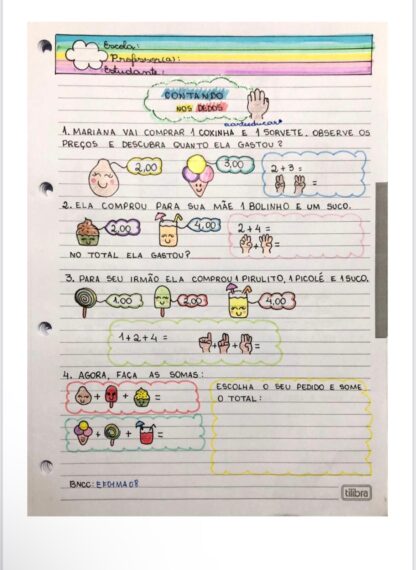 Escola:
Professor(a):
Estudante:
CONTANDO
NOS DEDOS
1. MARIANA VAI COMPRAR 1 COXINHA E 1 SORVETE. OBSERVE OS
PREÇOS E DESCUBRA QUANTO ELA GASTOU?
2,00
3,00
2 + 3 =
=
2. ELA COMPROU PARA SUA MÃE 1 BOLINHO E UM SUCO.
2,00
4,00
2 + 4 =
+ =
NO TOTAL ELA GASTOU?
3. PARA SEU IRMÃO ELA COMPROU 1 PIRULITO, 1 PICOLÉ E 1 SUCO.
1,00
2,00
4,00
1 + 2 + 4 =
+ + =
4. AGORA, FAÇA AS SOMAS:
+ + =
+ + =
ESCOLHA O SEU PEDIDO E SOME
O TOTAL:
BNCC: EF01MA08
tilibra